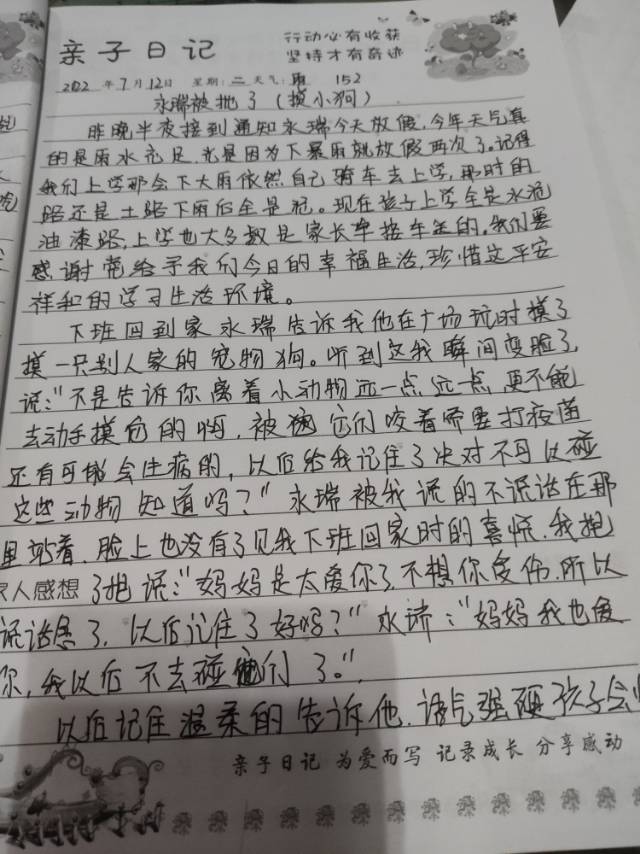 亲子日记
行动必有收获
坚持才有奇迹
202 年 7 月 12 日 星期:二 天气: 152
永瑞被抛了(摸小狗)
昨晚半夜接到通知永瑞今天放假,今年天气真
的是雨水充足,光是因为下暴雨就放假两次了。记得
我们上学那会下大雨依然自己骑车去上学,那时的
路还是土路下雨后全是泥。现在孩子上学全是水泥
油漆路,上学也大多数是家长车接车送的,我们要
感谢党给予我们今日的幸福生活,珍惜这平安
祥和的学习生活环境。
下班回到家永瑞告诉我他在广场玩时摸了
摸一只别人家的宠物狗。听到这我瞬间变脸了,
说:"不是告诉你离着小动物远一点远一点,更不能
去动手摸它的啊,被 它们咬着需要打疫苗
还有可能会生病的,以后给我记住了决对不可以碰
这些动物知道吗?"永瑞被我说的不说话在那
里站着,脸上也没有了见我下班回家时的喜悦,我抱
家人感想 了抱说:"妈妈是太爱你了,不想你受伤,所以
说话急了,以后记住了好吗?"永瑞:"妈妈我也爱
你,我以后不去碰它们了。"
以后记住温柔的告诉他,语气强硬孩子会
亲子日记 为爱而写 记录成长 分享感动